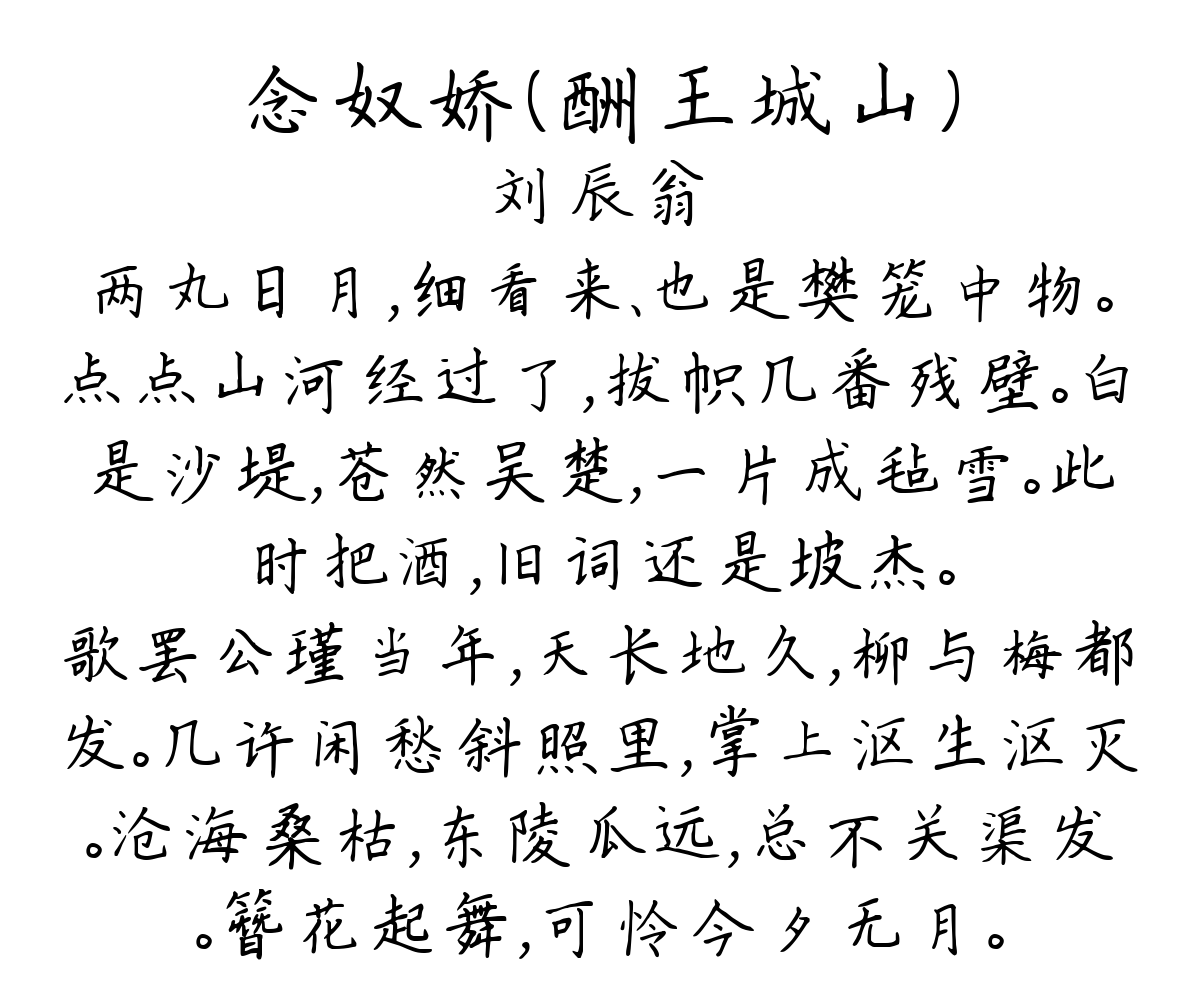 念奴娇(酬王城山)
刘辰翁
两丸日月,细看来、也是樊笼中物。
点点山河经过了,拔帜几番残壁。白
是沙堤,苍然吴楚,一片成毡雪。此
时把酒,旧词还是坡杰。
歌罢公瑾当年,天长地久,柳与梅都
发。几许闲愁斜照里,掌上沤生沤灭
。沧海桑枯,东陵瓜远,总不关渠发
。簪花起舞,可怜今夕无月。